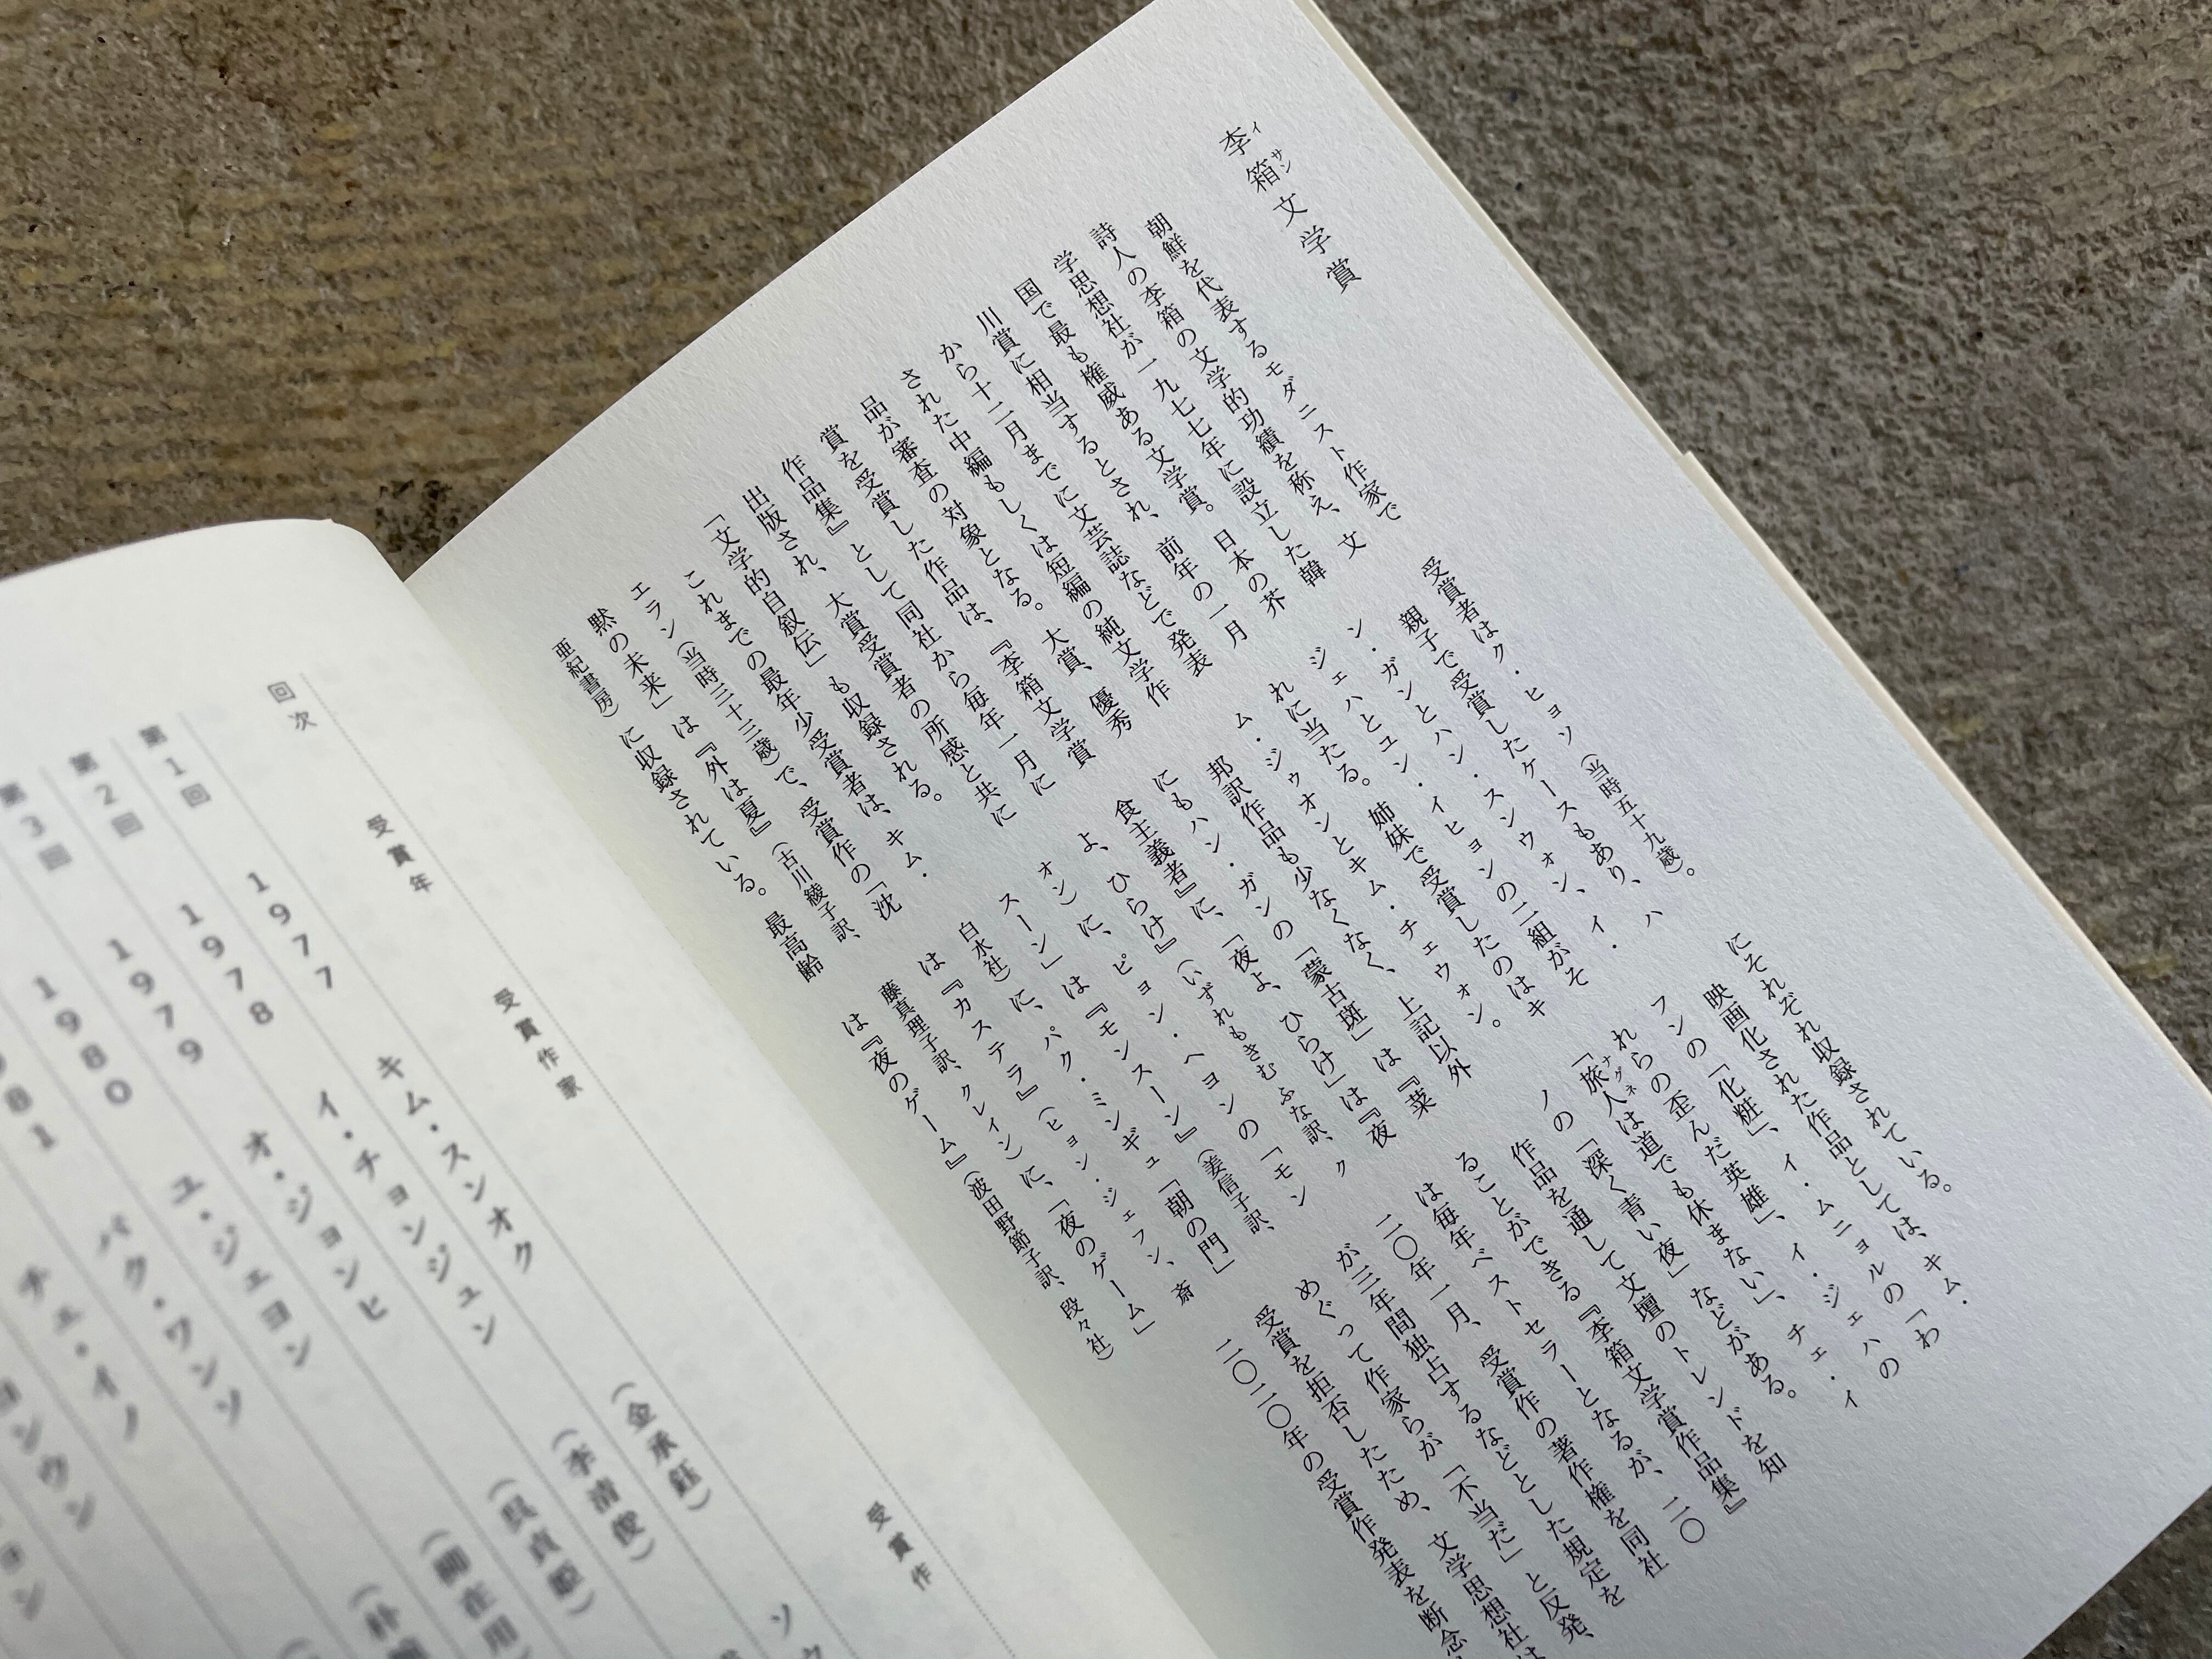 李箱文学賞
イ サン
朝鮮を代表するモダニスト作家で
詩人の李箱の文学的功績を称え、文
学思想社が一九七七年に設立した韓
国で最も権威ある文学賞。日本の芥
川賞に相当するとされ、前年の一月
から十二月までに文芸誌などで発表
された中編もしくは短編の純文学作
品が審査の対象となる。大賞、優秀
賞を受賞した作品は、『李箱文学賞
作品集』として同社から毎年一月に
出版され、大賞受賞者の所感と共に
「文学的自叙伝」も収録される。
これまでの最年少受賞者は、キム・
エラン（当時三十三歳）で、受賞作の「沈
黙の未来」は『外は夏』（古川綾子訳、
亜紀書房）に収録されている。最高齢
受賞者はク・ヒョソ（当時五十九歳）。
親子で受賞したケースもあり、ハ
ン・ガンとハン・スンウォン、イ・
ジェハとユン・イヒョンの二組がそ
れに当たる。姉妹で受賞したのはキ
ム・ジウォンとキム・チェウォン。
邦訳作品も少なくなく、上記以外
にもハン・ガンの「蒙古斑」は『菜
食主義者』に、「夜よ、ひらけ」は『夜
よ、ひらけ』（いずれもきむふな訳、ク
オン）に、ピョン・ヘヨンの「モン
スーン」は『モンスーン』（姜信子訳、
白水社）に、パク・ミンギュ「朝の門」
は『カステラ』（ヒョン・ジェフン、斎
藤真理子訳、クレイン）に、「夜のゲーム」
は『夜のゲーム』（波田野節子訳、段々社）
にそれぞれ収録されている。
映画化された作品としては、キム・
フンの「化粧」、イ・ムニョルの「わ
れらの歪んだ英雄」、イ・ジェハの
「旅人は道でも休まない」、チェ・イ
ナグネ
ノの「深く青い夜」などがある。
作品を通して文壇のトレンドを知
ることができる『李箱文学賞作品集』
は毎年ベストセラーとなるが、二〇
二〇年一月、受賞作の著作権を同社
が三年間独占するなどとした規定を
めぐって作家らが「不当だ」と反発、
受賞を拒否したため、文学思想社は
二〇二〇年の受賞作発表を断念
回次 受賞年 受賞作家 受賞作
第1回 1977 キム・スンオク（金承鈺） ソウ
第2回 1978 イ・チョンジュン（李清俊）
第3回 1979 オ・ジョンヒ（呉貞姫）
1980 ユ・ジェヨン（柳在用）
981 パク・ワンソ
チェ・イノ